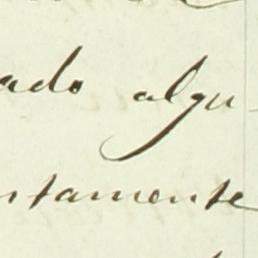 ado algu
ntamente